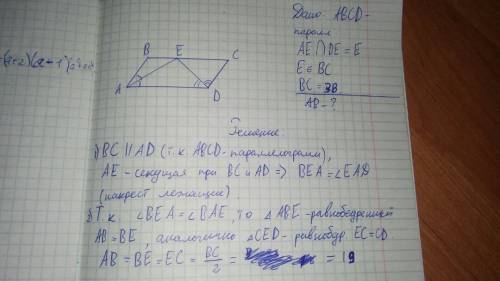 Дано: ABCD-
паралл
AE∩DE=E
E∈BC
BC=38
AB-?
B E C
A D
Решение:
1) BC || AD (т.к. ABCD-параллелограмм),
AE - секущая при BC и AD => BEA=∠EAD
(накрест лежащие)
2) Т.к. ∠BEA=∠BAE, то △ABE-равнобедренный
AB=BE, аналогично △CED-равнобедр. EC=CD.
AB=BE=EC=BC/2= =19